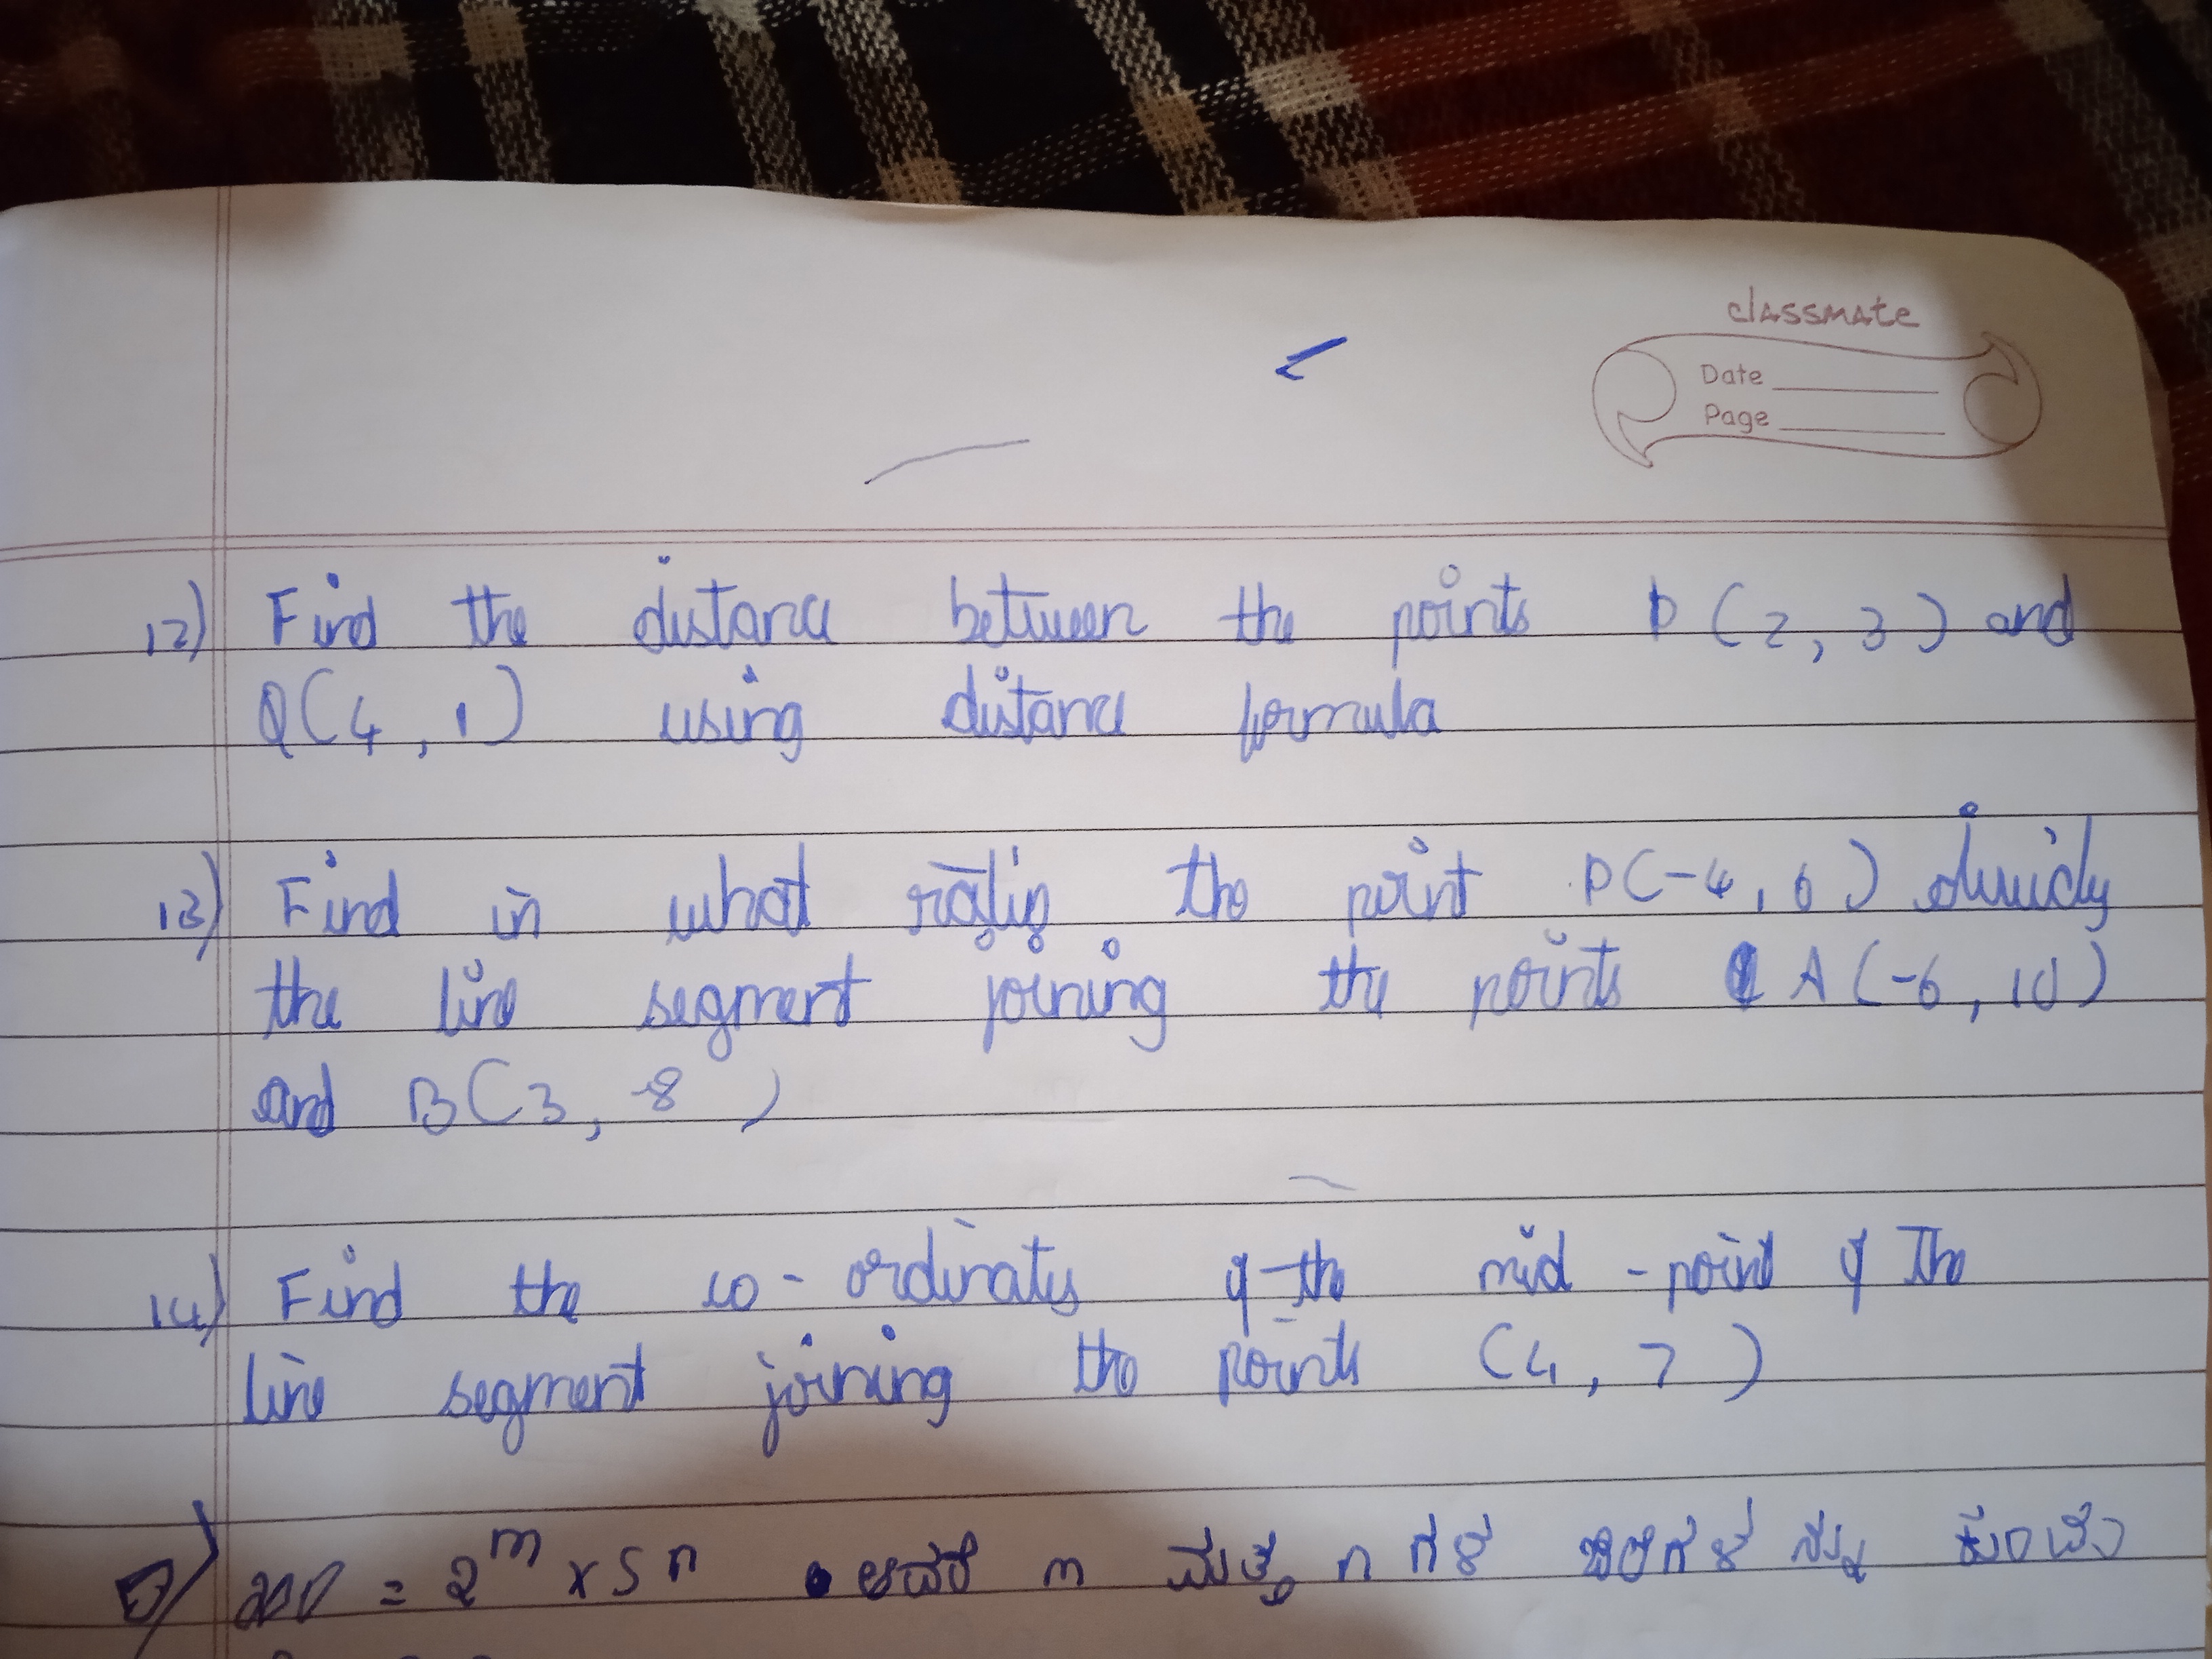 classmate
Date
Page
12) Find the distance between the points P (2, 3) and
Q(4, 1) using distance formula
13) Find in what the point P(-4, 6) divides
the line segment joining the points A (-6, 10)
and B(3, -8)
14) Find the co-ordinates of the mid-point of the
line segment joining the points (4, 7)
= 2^m x 5^n m n